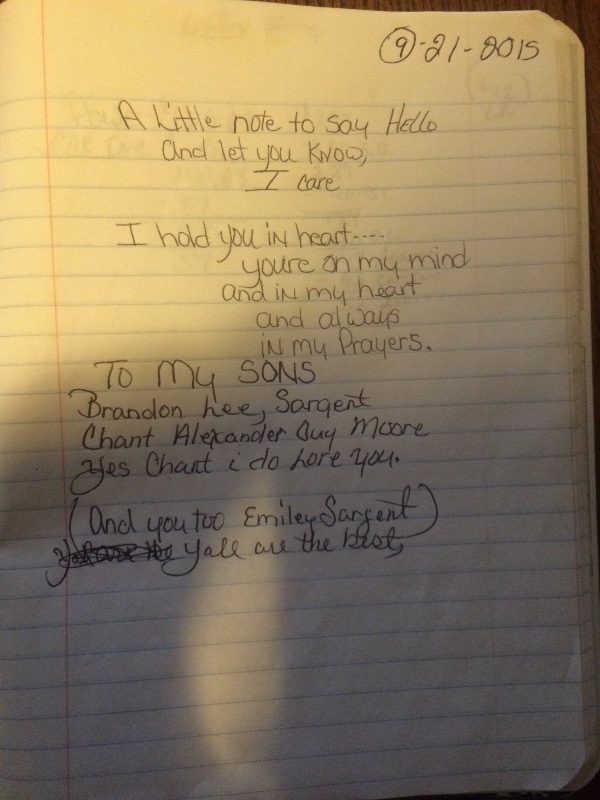 9-21-2015
A Little note to say Hello
and let you know,
I care
I hold you in heart----
youre on my mind
and in my heart
and always
in my Prayers.
To My SONS
Brandon Lee, Sargent
Chant Alexander Guy Moore
Yes Chant i do Love you.
(And you too Emiley Sargent)
yall are the best,